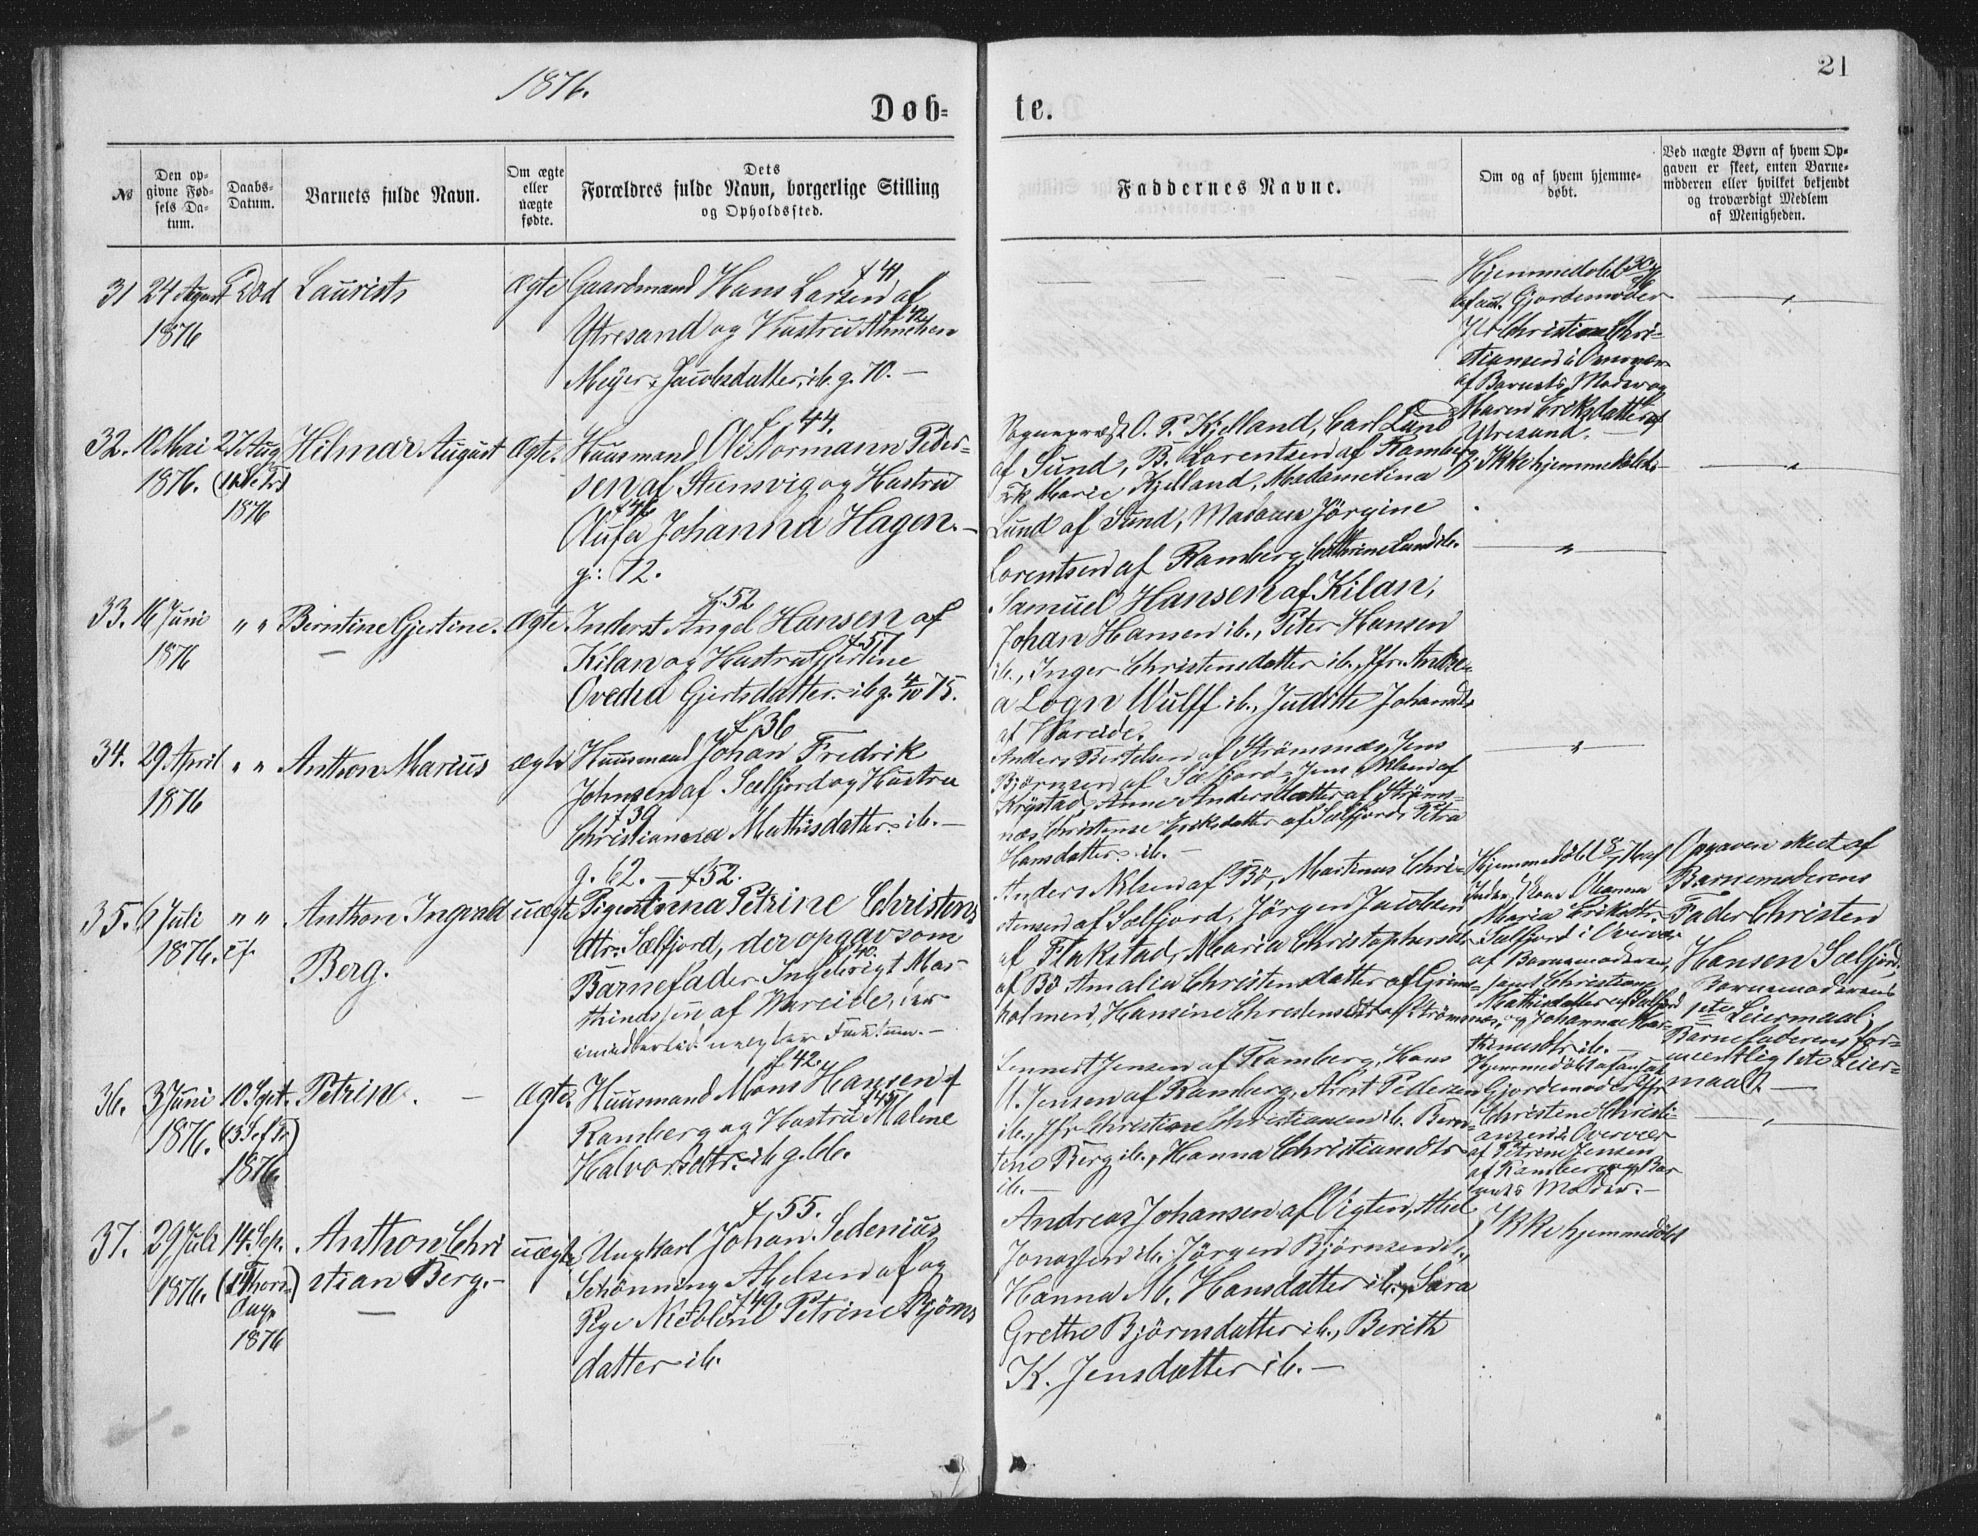 1876.
21
Døb-
te.
№
Den op-
givne Fød-
sels Da-
tum.
Daabs-
Datum.
Barnets fulde Navn.
Om ægte
eller
uægte
fødte.
Dets
Forældres fulde Navn, borgerlige Stilling
og Opholdssted.
Faddernes Navne.
Om og af hvem hjemme-
døbt.
Ved uægte Børn af hvem Op-
gaven er skeet, enten Barne-
møderen eller hvilket bekjendt
og troværdigt Medlem
af Menigheden.
31
24 August
1876
Død
Laurists
Ægte
Gaardmand Hans Larsen af
f 41
Ytresand og Hustru
f 42
Meyer Jacobsdatter, ib. g. 70. —
Hjemmedøbt 30/8 76
af aut. Gjordemoder
Christine Chri-
stiansen i Overvær
af Barnets Moder og
Maren Eriksdatter af
Ytresand. —
32.
10 Mai
1876.
27 Aug
1876
Hilmar August
Ægte.
f 44.
Huusmand Ole Normann Peder-
sen af Stensvig og Hustru
f 46
Olufa Johanna Hagen. —
g: 72.
Sognepræst O. P. Kjelland, Carl Lund
af Sund, B. Lorentsen af Ramberg
Marie Kjelland, Madame Lina
Lund af Sund, Madame Jörgine
Lorentsen af Ramberg, Cathrine Lund ib.
Ikke hjemmedøbt.
33.
16 Juni
1876
" "
Berntine Gjertine.
Ægte
f. 52
Inderst Angel Hansen af
f. 57
Kilan og Hustru Gjertine
Ovedia Gjertsdatter ib g. 4/10 75.
Samuel Hansen af Kilan,
Johan Hansen ib., Peter Hansen
ib., Inger Christensdatter ib., Jfr. Andre-
a Logn Wulff ib., Judithe Johansdtr
af Vareide.
34.
29 April
1876
" "
Anthon Marius
ægte
f 36
Huusmand Johan Fredrik
Johnsen af Sælfjord og Hustru
f 39
Christianna Mathisdatter ib. —
g. 62. —
Anders Bertelsen af Strömsnæs, Jens
Björnsen af Sælfjord, Jens Olsen af
Krystad, Anne Andersdatter af Ströms-
næs, Christense Eriksdatter af Sælfjord, Petra
Hansdatter ib. —
35.
Juli
1876.
" "
Anthon Ingvald
Berg.
uægte
f 52.
Pigen Anna Petrine Christens
dtr. Sælfjord, der opgav som
f 40.
Barnefader Ingebrigt Mar-
thinussen af Vareide, der
imidlertid negter
Anders Nilsen af Bö, Martinus Chri-
stensen af Sælfjord, Jörgen Jacobsen
af Flakstad, Maria Christophersdtr
af Bö Amalia Christensdatter af Grim-
holmen, Hansine Christensdtr af Strömsnæs
Hjemmedöbt
Oleanna
Maria Eriksdtr.
Sælfjord i Overvær
af Barnemoderen,
samt Christianna
Mathisdatter af Sælfjord
og Johanna Mar-
thinusdtr ib. —
Opgaven skeet af
Barnemoderens
Fader Christen
Hansen Sælfjord.
Barnemoderens
1ste Leiermaal;
Barnefaderens for-
meentlig 1ste Leier-
maal. —
36.
3 Juni
1876.
10 Sept.
1876.
Petrine. —
Ægte.
f 42.
Huusmand Mons Hansen af
f 45
Ramberg og Hustru Malene
Halvorsdtr. ib g. 66.
Lennert Jensen af Ramberg, Hans
M. Jensen af Ramberg, Arnt Pedersen
ib., Jfr Christine Christiansen ib. Bern-
tine Berg ib., Hanna Christiansdtr
ib. —
Hjemmedøbt af
Gjordemoder Jfr
Christine Christi-
ansen i Overvær
af Petrine Jensen
af Ramberg og Bar-
nets Moder. —
37.
29 Juli
1876.
14. Sep.
1876
Anthon Chri
stian Berg. —
uægte
f 55.
Ungkarl Johan Sedenius
Schönning Axelsen af og
f 49.
Pige Nicoline Petrine Björns
datter ib.
Andreas Johansen af Vigten, Axel
Jonassen ib. Jörgen Björnsen ib.,
Hanna M. Hansdatter ib., Sara
Grethe Björnsdatter ib., Berith
K. Jensdatter ib. —
Ikke hjemmedöbt